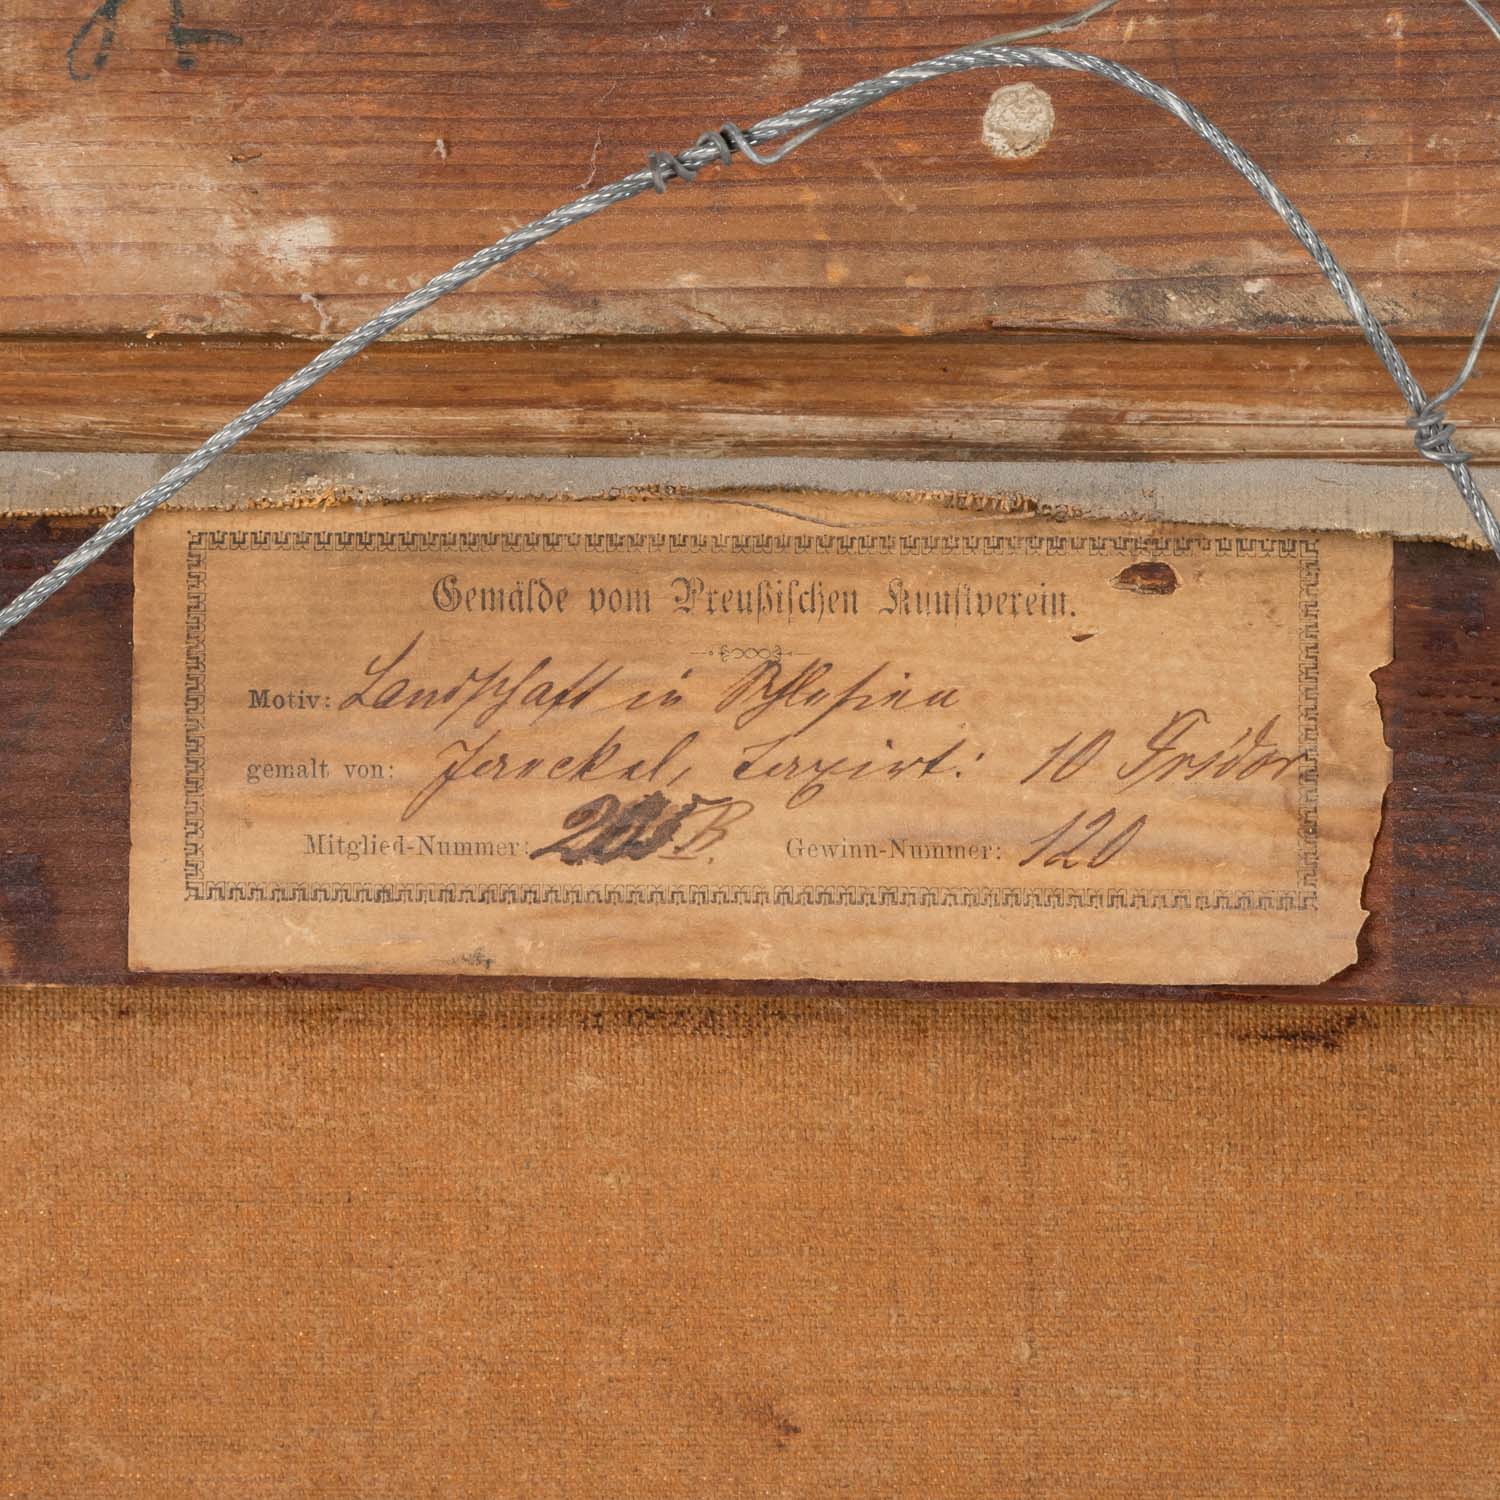 Gemälde vom Preußischen Kunstverein.
Motiv: Landschaft in Schlesien
gemalt von: Jaeckel, taxirt: 10 Frsdor
Mitglied-Nummer: B. Gewinn-Nummer: 120